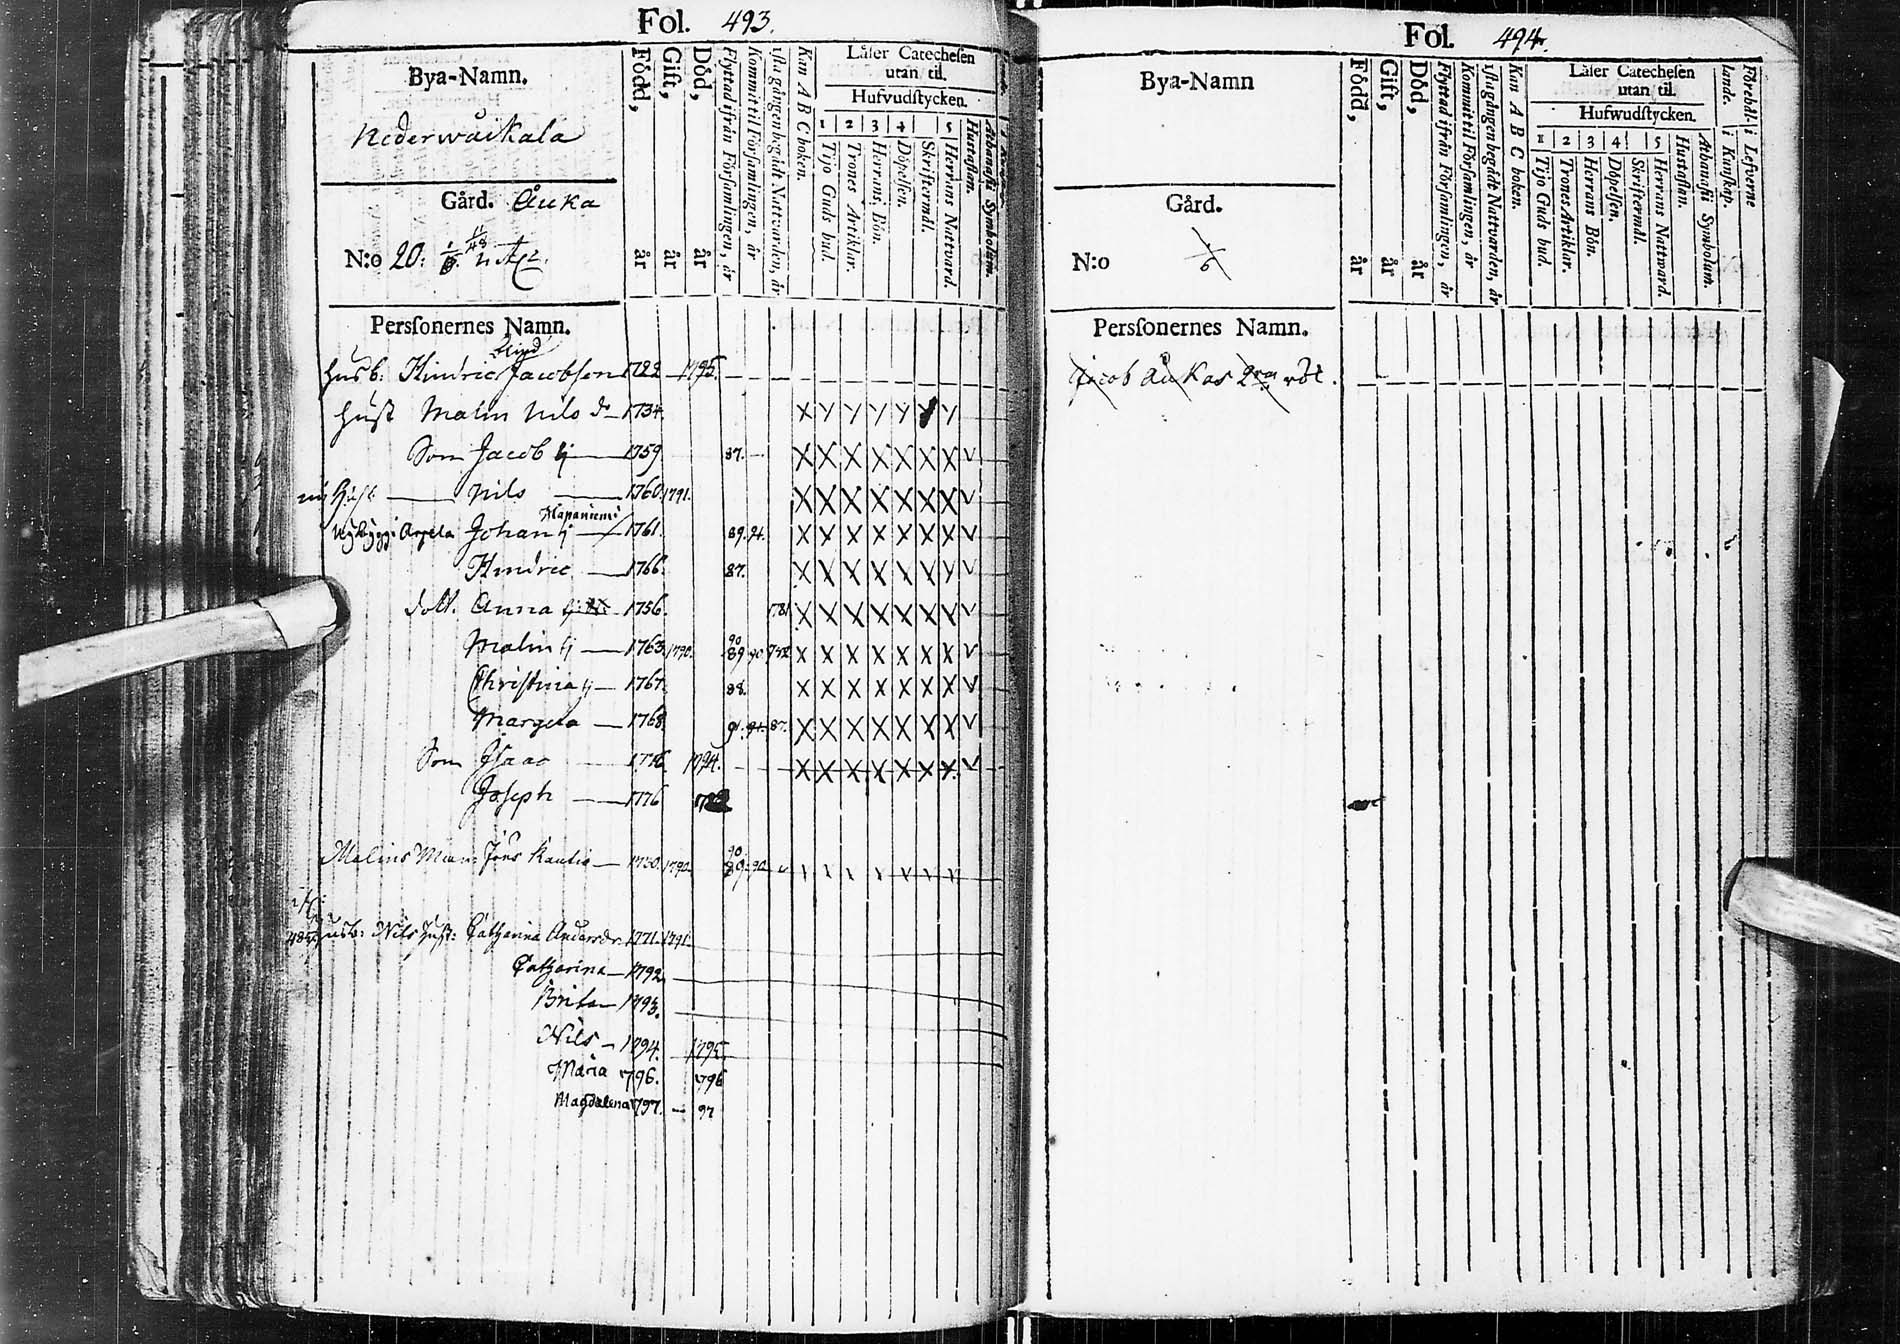 Fol. 493.
Bya-Namn.
Nederwuikala
Gård. Auka
N:o 20.
Född, år
Gift, år
Död, år
Flyttad ifrån Församlingen, år
Kommit til Församlingen, år
ista gången begådt Nattvarden, år
Kan A B C boken.
Läser Catechesen utan til.
Hufvudstycken.
1 2 3 4 5
Tijo Guds bud.
Trones Artiklar.
Herrans Bön.
Döpelsen.
Skriftermål.
Herrans Nattvard.
Hustaflan.
Athanasii Symbolum.
Perssonernes Namn.
Blind
Husb. Hindric Jacobsson 1722 1795.
Hust Malin Nils dr 1734.
Son Jacob 1759 87.
Nils 1760. 1791.
Mapaniemi
Johan 1761. 89. 94.
Hindric 1766. 87.
dott. Anna 1756. 1781
90
Malin 1763. 1790. 89 90
Christina 1767. 88.
Margeta 1768. 91. 87.
Son Isaac 1794.
Joseph 1776
90
Malins Man Jöns 1790. 89. 90
Husb: Nils Hust: Catharina Andersdr. 1771. 1791.
Catharina 1792.
Brita 1793.
Nils 1794. 1795.
Maria 1796. 1796
Magdalena 1797. 97
Fol. 494.
Bya-Namn
Gård.
N:o 1/6
Född, år
Gift, år
Död, år
Flyttad ifrån Församlingen, år
Kommit til Församlingen, år
ista gången begådt Nattvarden, år
Kan A B C boken.
Läser Catechesen utan til.
Hufwudstycken.
1 2 3 4 5
Tijo Guds bud.
Trones Artiklar.
Herrans Bön.
Döpelsen.
Skriftermål.
Herrans Nattward.
Hustaflan.
Athanasii Symbolum.
i Kunskap.
i Lefverne
Perssonernes Namn.
Jacob Aukas 2ra röt.